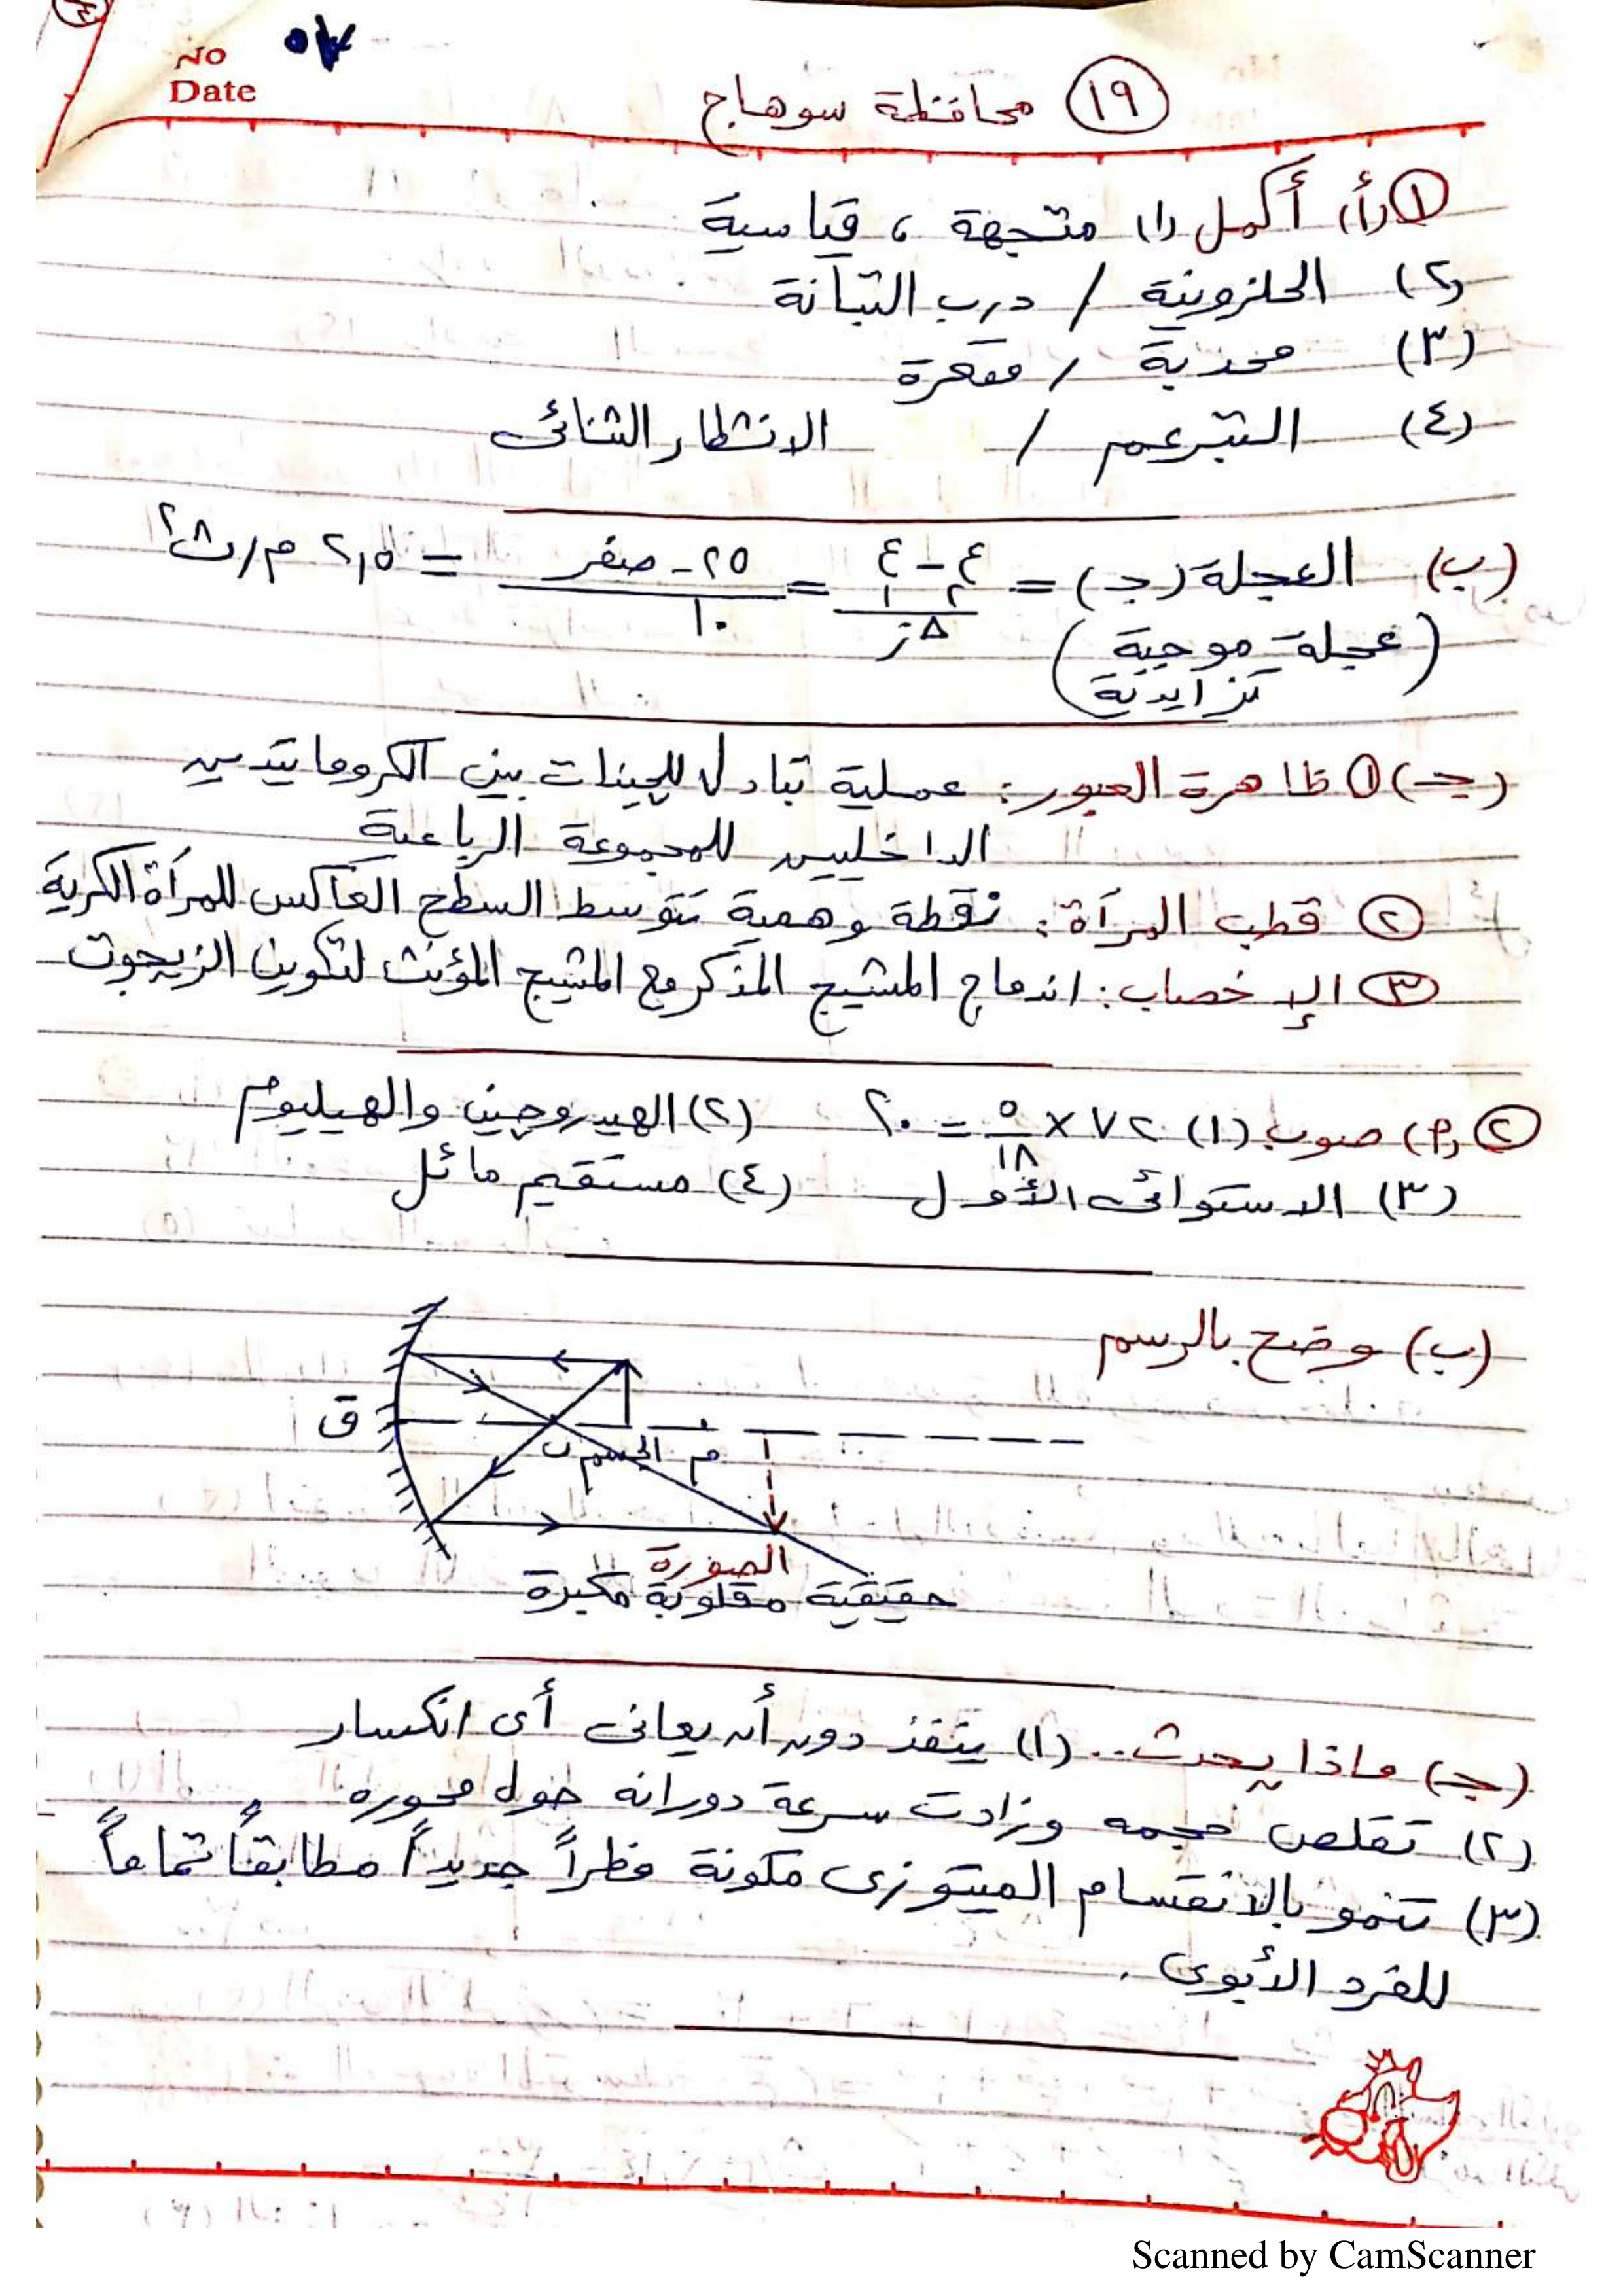 No
Date
١٩ محافظة سوهاج
١ (أ) أكمل (١) متجهة ، قياسية
(٢) الحلزونية / درب التبانة
(٣) محدبة / مقعرة
(٤) التبرعم / الانشطار الثنائى
(ب) العجلة (جـ) = ع٢ - ع١ / Δز = ٢٥ - صفر / ١٠ = ٢,٥ م/ث٢
(عجلة موجبة
تزايدية)
(جـ) ١ ظاهرة العبور : عملية تبادل للجينات بين الكروماتيدين
الداخليين للمجموعة الرباعية
٢ قطب المرآة : نقطة وهمية تتوسط السطح العاكس للمرآة الكرية
٣ الإخصاب : اندماج المشيج المذكر مع المشيج المؤنث لتكوين الزيجوت
٢ (أ) صوب (١) ٧٢ × ٥/١٨ = ٢٠ (٢) الهيدروجين والهيليوم
(٣) الاستوائى الأول (٤) مستقيم مائل
(ب) وضح بالرسم
ق
ب الجسم م
الصورة
حقيقية مقلوبة مكبرة
(جـ) ماذا يحدث .. (١) ينفذ دون أن يعانى أى انكسار
(٢) تقلص حجمه وزادت سرعة دورانه حول محوره
(٣) تنمو بالانقسام الميتوزى مكونة فطراً جديداً مطابقاً تماماً
للفرد الأبوى .
Scanned by CamScanner